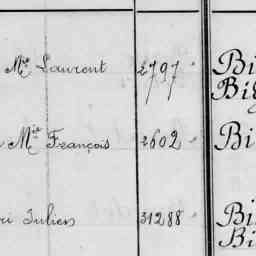 Mie Laurent 2797 Bi
Big
Mie François 2602 Bi
ri Julien 31288 Bi
Bi